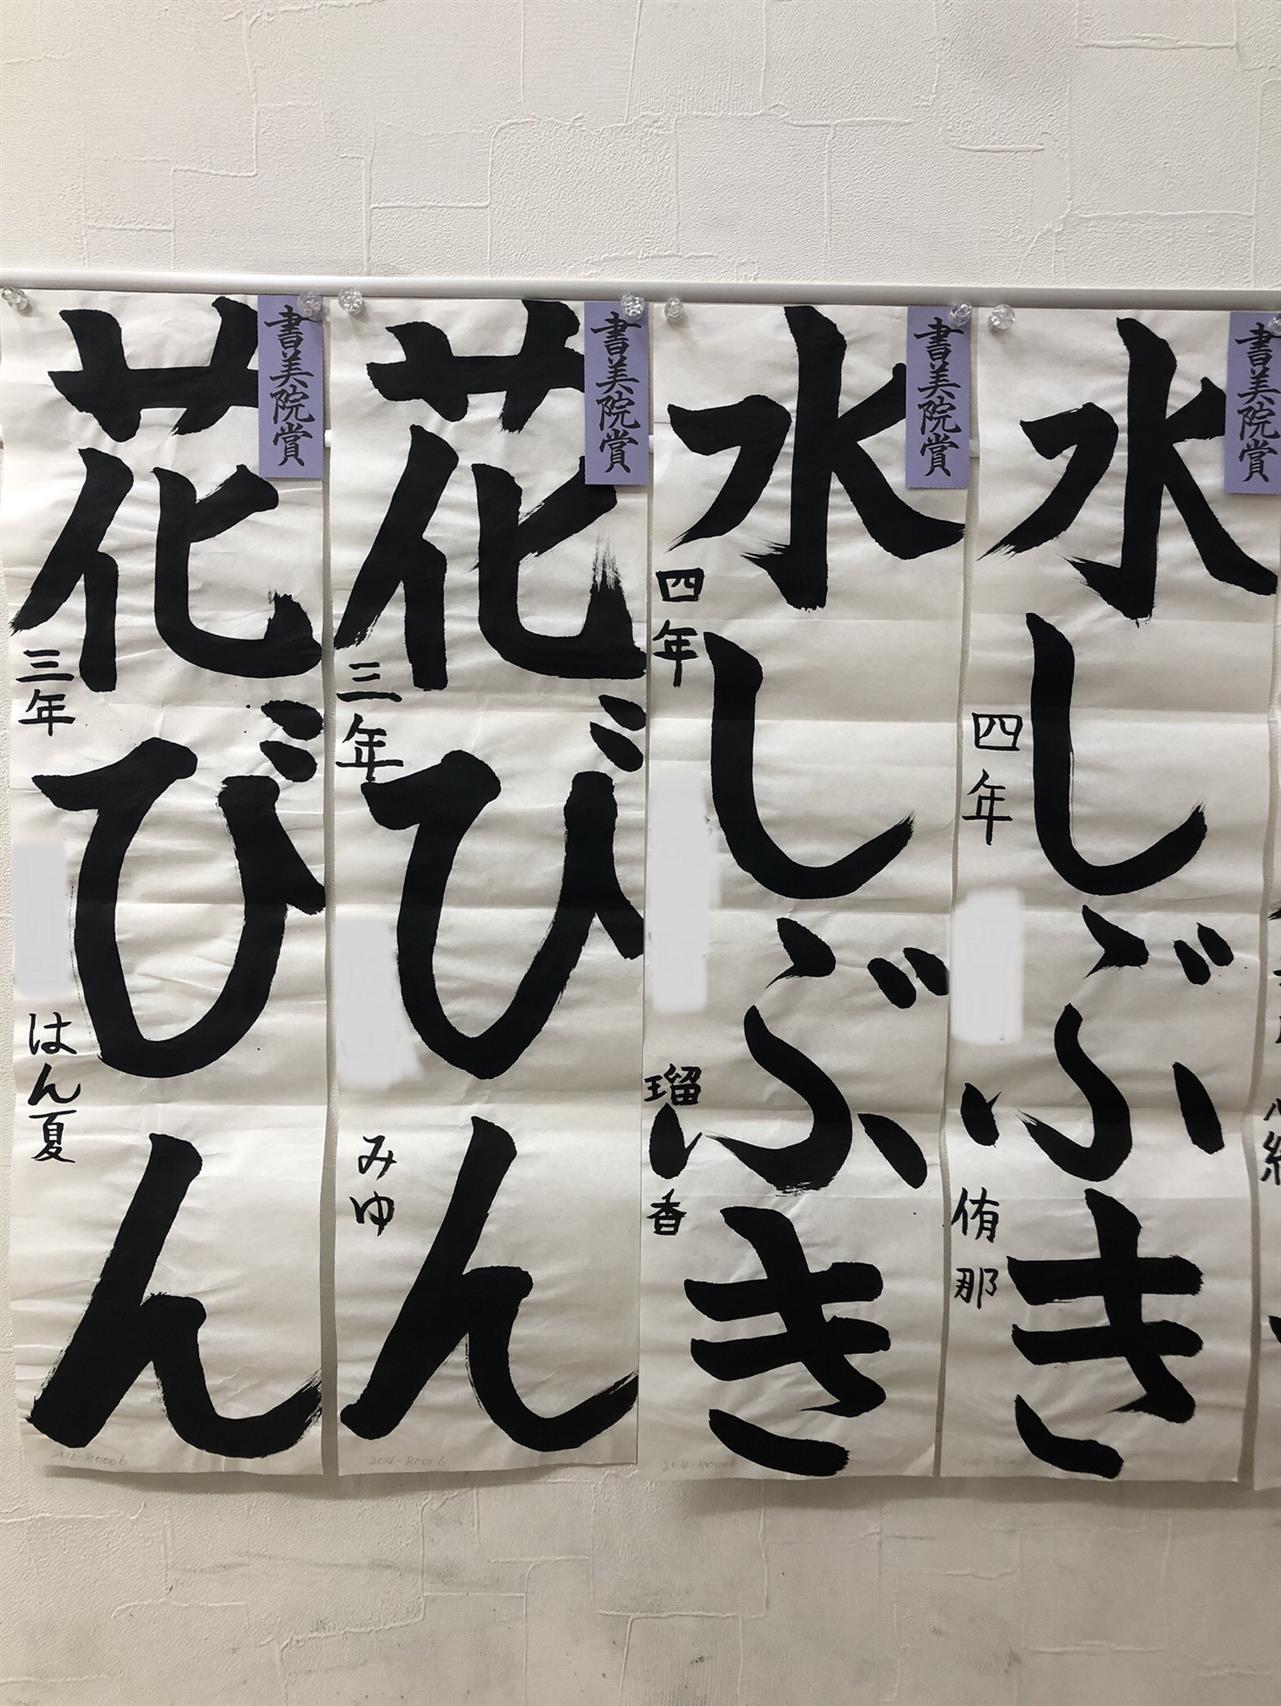 書美院賞
水しぶき
四年
侑那
書美院賞
水しぶき
四年
瑠香
書美院賞
花びん
三年
みゆ
書美院賞
花びん
三年
はん夏